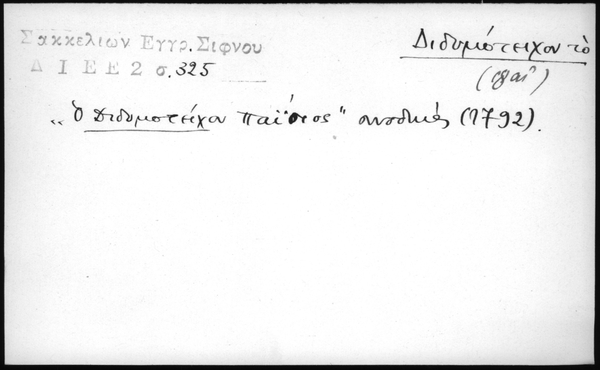 Σακκελιων Εγγρ. Σιφνου
Δ Ι Ε Ε 2 σ. 325
Διδυμότειχον τὸ
„ὁ Διδυμοτείχου Παΐσιος" συνοδικός (1792).